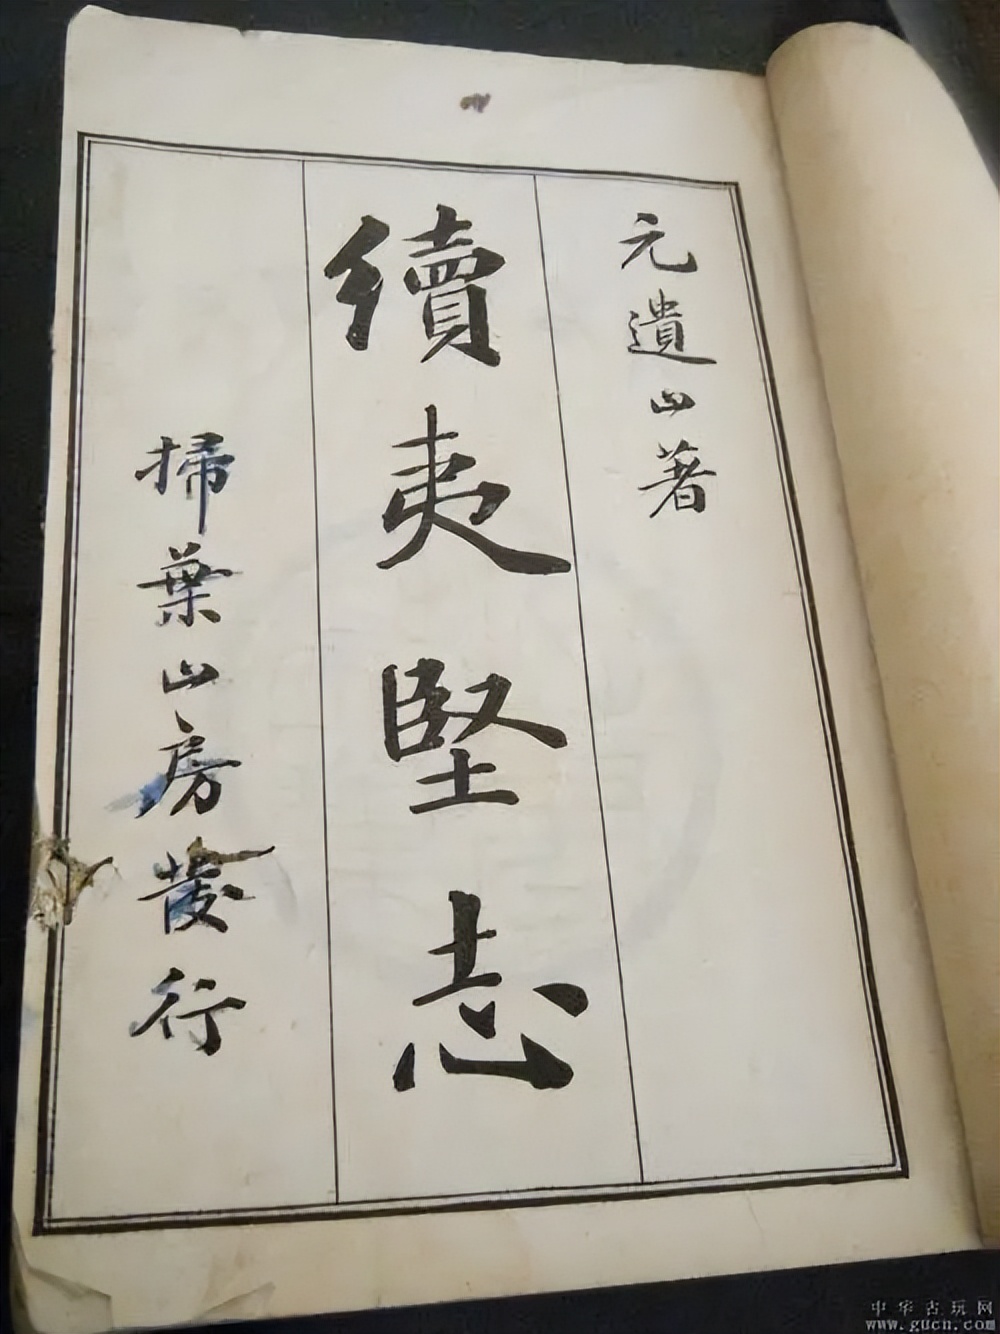 元遺山著
續夷堅志
掃葉山房發行
中华古玩网
www.gucn.com